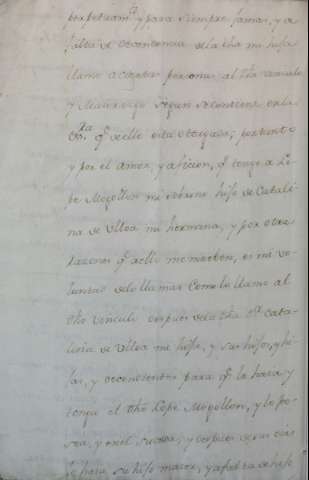 perpetuam.te y para siempre jamas, y a
falta de decendencia de la dha mi hija
llamo a ciertas personas al dho vinculo
y Maiorazgo segun se contiene en la
Escr.ra q.e de ello esta otorgada; por tanto
y por el amor, y aficion, q.e tengo a Lo-
pe Mogollon mi sobrino hijo de Catali-
na de Ulloa mi hermana, y por otras
razones q.e a ello me mueben, es mi vo-
luntad de lo llamar como lo llamo al
dho vinculo despues de la dha D.a Cata-
lina de Ulloa mi hija, y sus hijos, y hi-
jas, y decendientes para q.e la haya y
tenga el dho Lope Mogollon, y lo po-
sea, y en el suceda, y despues de sus dias
lo haya su hijo maior, y a falta de hijo